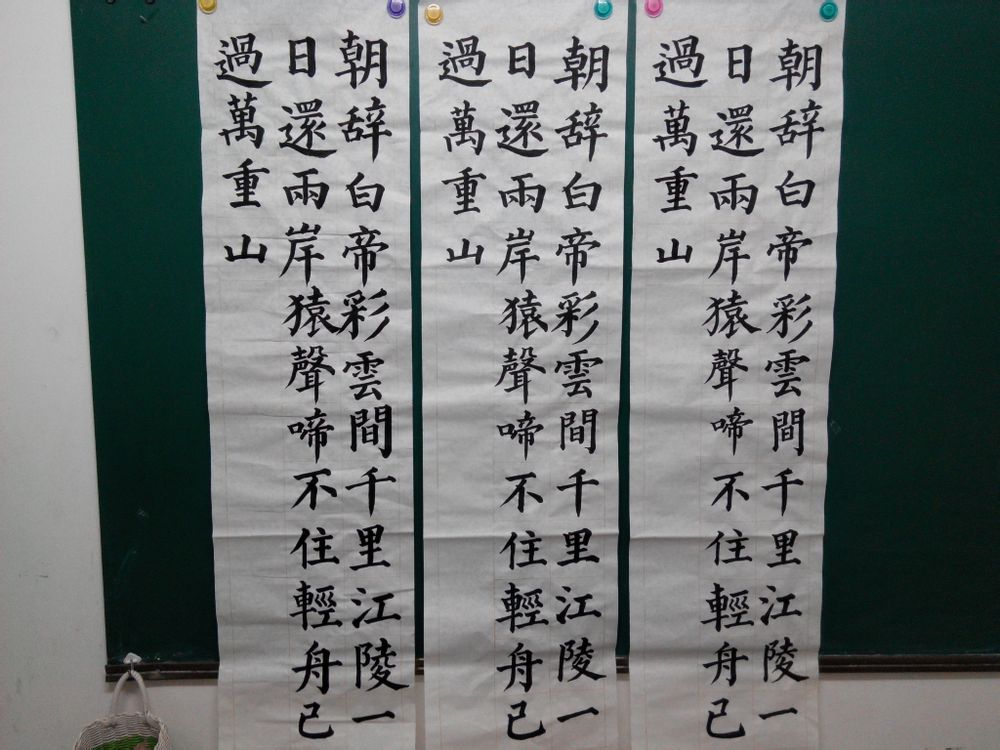 朝辞白帝彩雲間千里江陵一
日還兩岸猿聲啼不住輕舟已
過萬重山
朝辞白帝彩雲間千里江陵一
日還兩岸猿聲啼不住輕舟已
過萬重山
朝辞白帝彩雲間千里江陵一
日還兩岸猿聲啼不住輕舟已
過萬重山